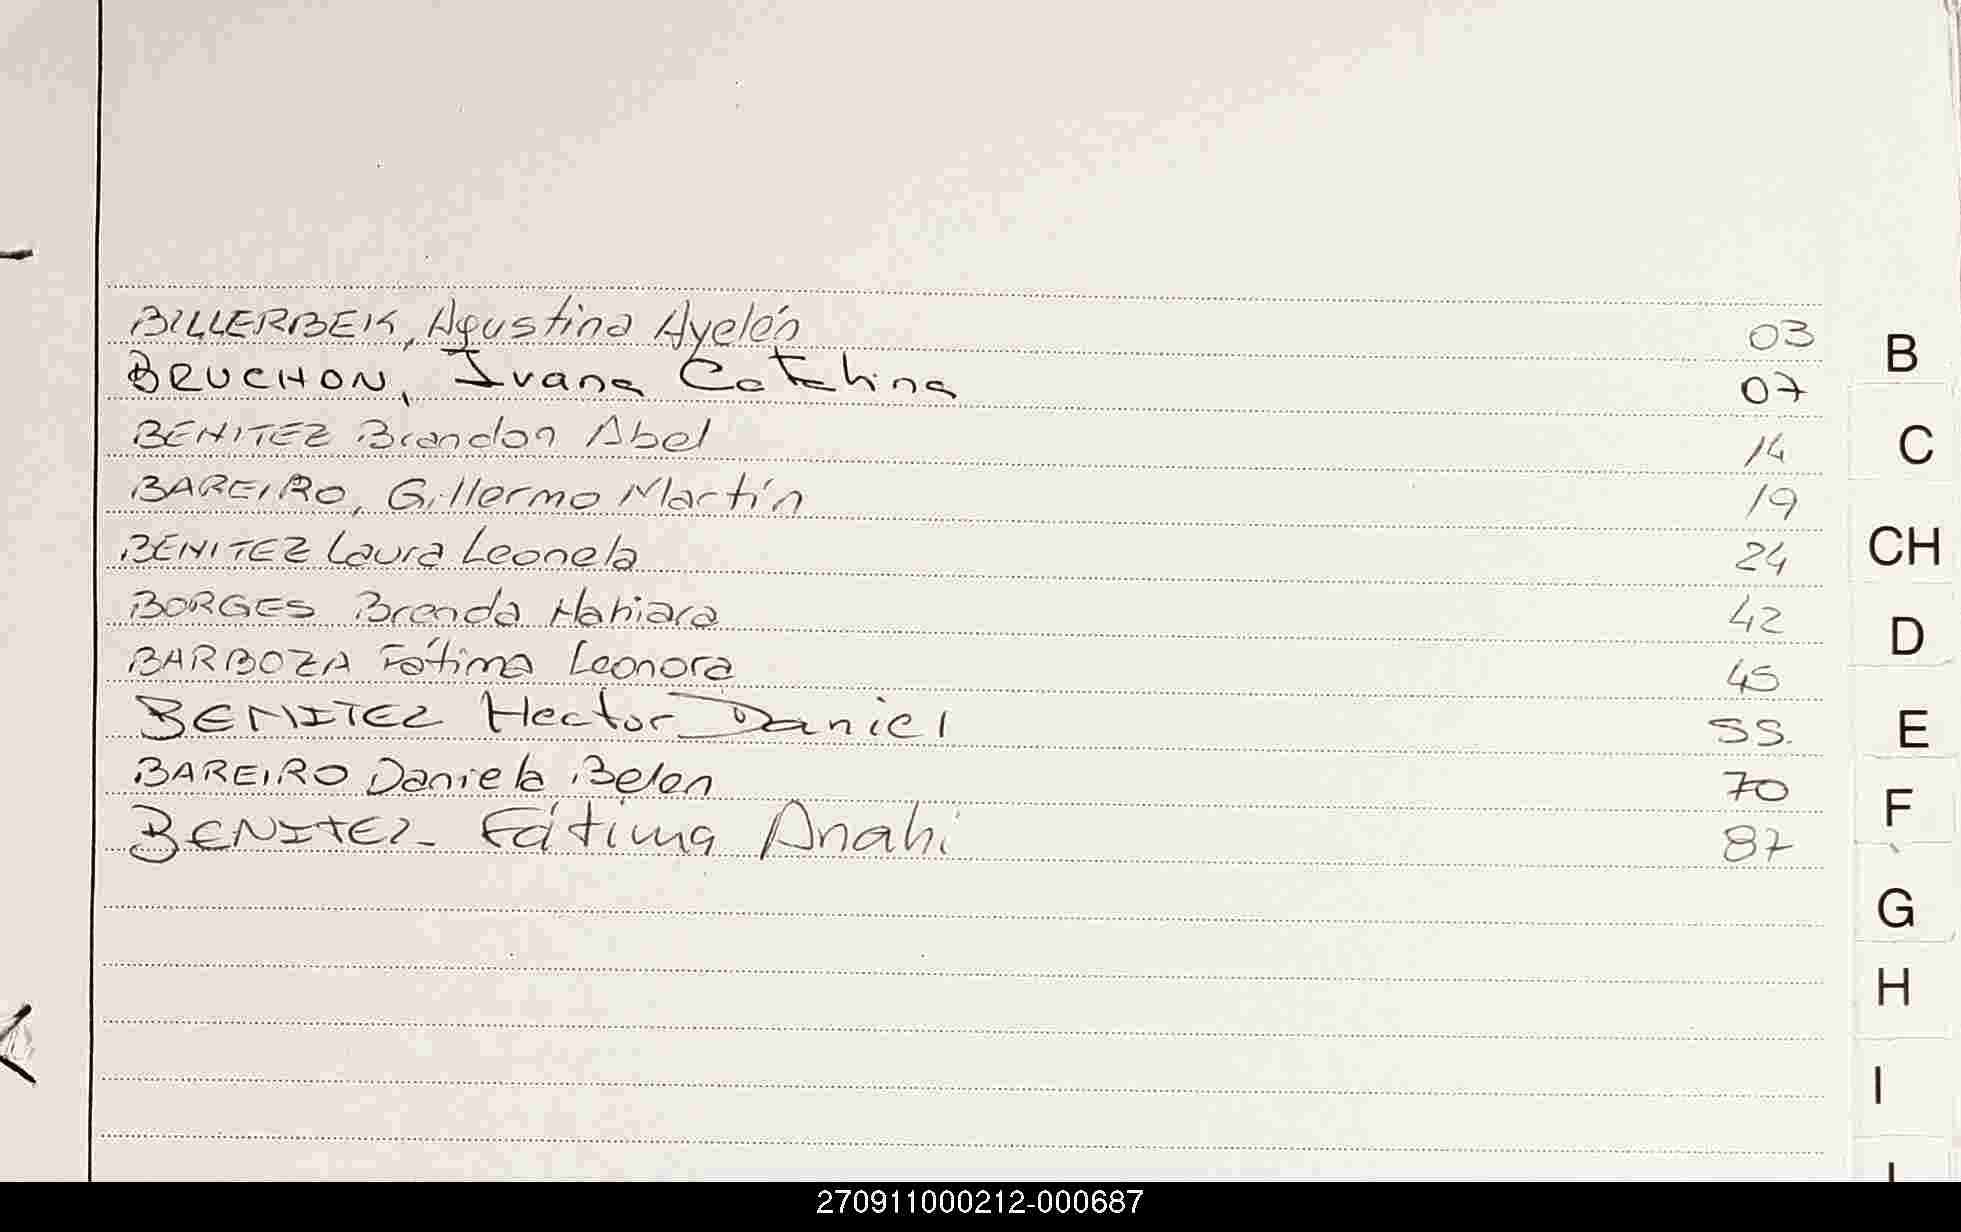 BILLERBEK, Agustina Ayelén 03
BRUCHON, Ivana Catalina 07
BENITEZ Brandon Abel 14
BAREIRO, Gillermo Martín 19
BENITEZ Laura Leonela 24
BORGES Brenda Nahiara 42
BARBOZA Fátima Leonora 45
BENITEZ Hector Daniel 55.
BAREIRO Daniela Belen 70
BENITEZ Fátima Anahi 87
B
C
CH
D
E
F
G
H
I
270911000212-000687